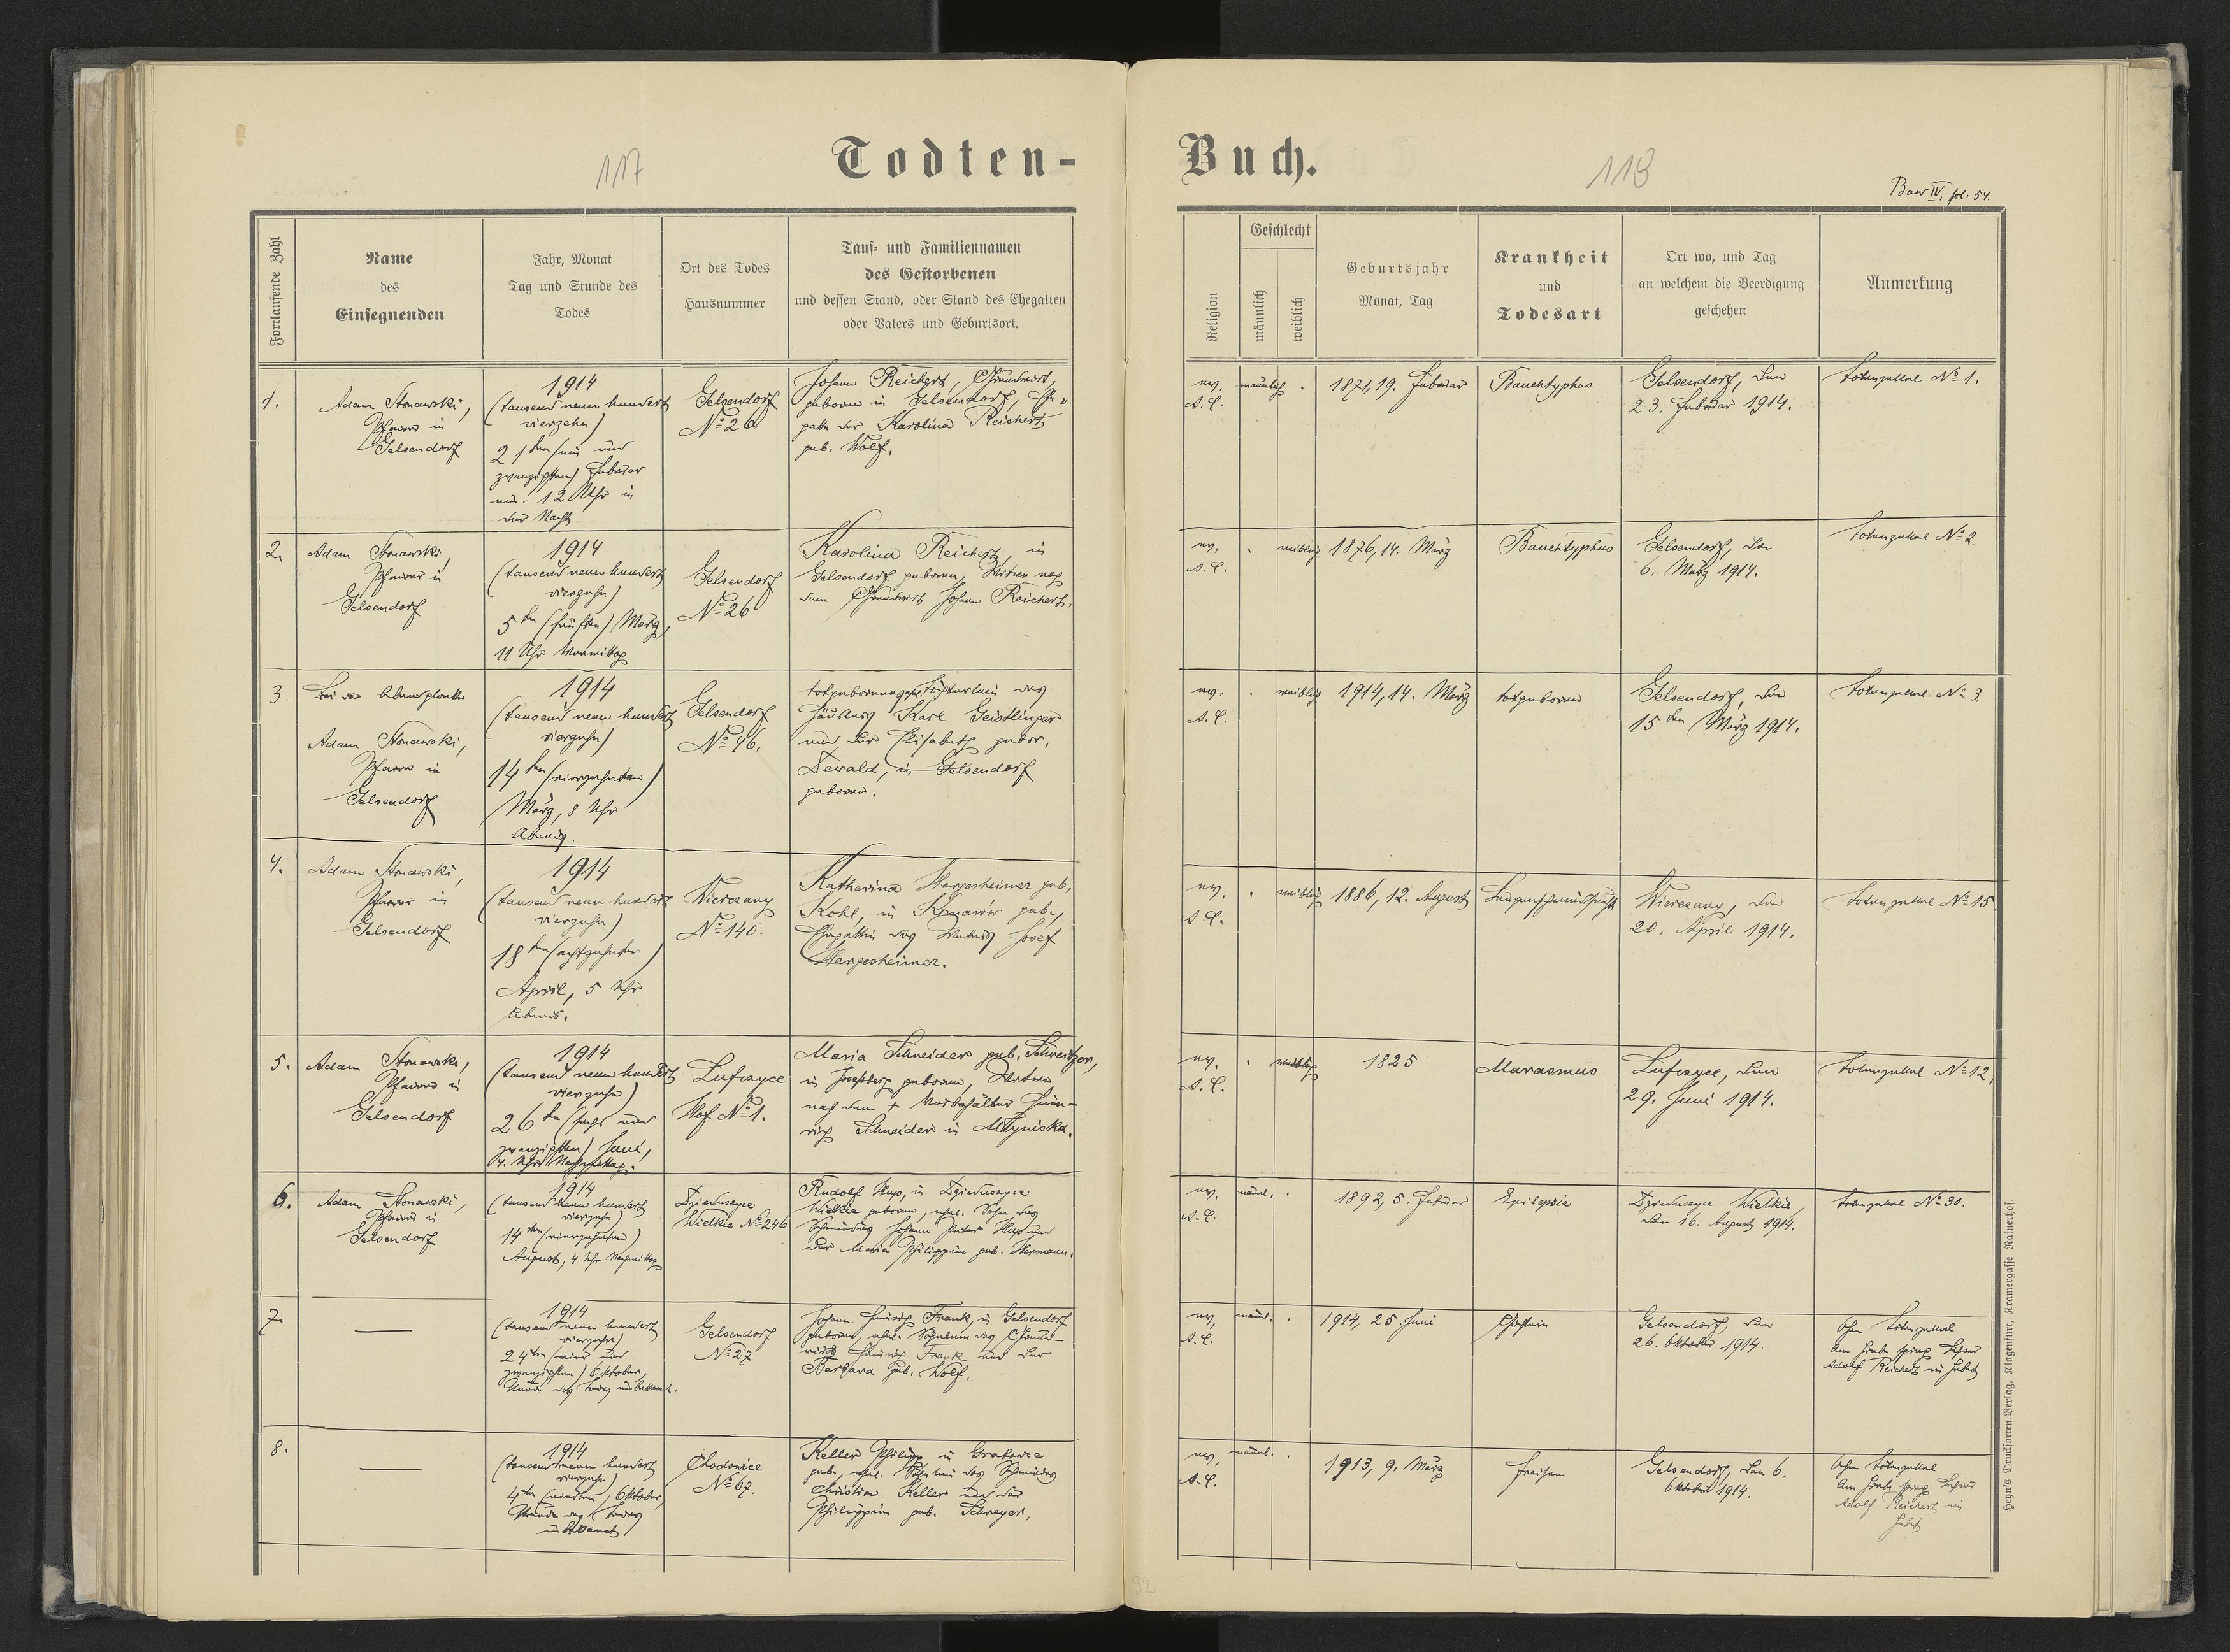 117
Todten-
Buch.
118
Band IV, fol. 54.
Fortlaufende Zahl
Name
des
Einsegnenden
Jahr, Monat
Tag und Stunde des
Todes
Ort des Todes
Hausnummer
Tauf- und Familiennamen
des Gestorbenen
und dessen Stand, oder Stand des Ehegatten
oder Vaters und Geburtsort.
Religion
Geschlecht
männlich
weiblich
Geburtsjahr
Monat, Tag
Krankheit
und
Todesart
Ort wo, und Tag
an welchem die Beerdigung
geschehen
Anmerkung
1.
Adam Stonawski,
Pfarrer in
Gelsendorf
1914
(tausend neun hundert
vierzehn)
21ten (ein und
zwanzigsten) Februar
um 12 Uhr in
der Nacht
Gelsendorf
№ 26
Johann Reichert, Grundwirt,
geboren in Gelsendorf, Ehe-
gatte der Karolina Reichert
geb. Wolf.
ev.
A.C.
männlich
1871, 19. Februar
Bauchtyphus
Gelsendorf, den
23. Februar 1914.
Totenzettel № 1.
2.
Adam Stonawski,
Pfarrer in
Gelsendorf
1914
(tausend neun hundert
vierzehn)
5ten (fünften) März,
11 Uhr Vormittag
Gelsendorf
№ 26
Karolina Reichert, in
Gelsendorf geboren, Witwe nach
dem Grundwirt Johann Reichert.
ev.
A.C.
weiblich
1876, 14. März
Bauchtyphus
Gelsendorf, den
6. März 1914.
Totenzettel № 2
3.
Bei der
Adam Stonawski,
Pfarrer in
Gelsendorf
1914
(tausend neun hundert
vierzehn)
14ten (vierzehnten)
März, 8 Uhr
Abends.
Gelsendorf
№ 46.
totgeborenes ehel. Töchterlein des
Häuslers Karl Geistlinger
und der Elisabeth gebor.
Dewald, in Gelsendorf
geboren.
ev.
A.C.
weiblich
1914, 14. März
totgeboren
Gelsendorf, den
15ten März 1914.
Totenzettel № 3.
4.
Adam Stonawski,
Pfarrer in
Gelsendorf
1914
(tausend neun hundert
vierzehn)
18ten (achtzehnten)
April, 5 Uhr
Abends.
Wierczany
№ 140.
Katharina Hargesheimer geb.
Kohl, in Komarów geb.,
Ehegattin des Webers Josef
Hargesheimer.
ev.
A.C.
weiblich
1886, 12. August
Lungenschwindsucht
Wierczany, den
20. April 1914.
Totenzettel № 15.
5.
Adam Stonawski,
Pfarrer in
Gelsendorf
1914
(tausend neun hundert
vierzehn)
26ten (sechs und
zwanzigsten) Juni,
4. Uhr Nachmittag.
Lufczyce
Hof № 1.
Maria Schneider geb. Schweitzer,
in Josefsberg geboren, Witwe
nach dem + Vorbehältler Hein-
rich Schneider in Młyniska.
ev.
A.C.
weiblich
1825
Marasmus
Lufczyce, den
29. Juni 1914.
Totenzettel № 12.
6.
Adam Stonawski,
Pfarrer in
Gelsendorf
1914
(tausend neun hundert
vierzehn)
14ten (vierzehnten)
August, 4 Uhr Nachmittag
Dzieduszyce
Wielkie № 246
Rudolf Hup, in Dzieduszyce
Wielkie geboren, ehel. Sohn des
Schmiedes Johann Hup und
der Maria Philippine geb. Hermann.
ev.
A.C.
männl.
1892, 5. Februar
Epilepsie
Dzieduszyce Wielkie,
den 16. August 1914.
Totenzettel № 30.
7.
—
1914
(tausend neun hundert
vierzehn)
24ten (vier und
zwanzigsten) Oktober,
Stunde des Todes unbekannt.
Gelsendorf
№ 27
Johann Heinrich Frank, in Gelsendorf
geboren, ehel. Söhnlein des Grund-
wirts Heinrich Frank und der
Barbara geb. Wolf.
ev.
A.C.
männl.
1914, 25. Juni
Gelsendorf, den
26. Oktober 1914.
Ohne Totenzettel
Am Grabe sprach Lehrer
Adolf Reichert ein Gebet
8.
—
1914
(tausend neun hundert
vierzehn)
4ten (vierten) Oktober,
Stunde des Todes
unbekannt
Chodowice
№ 67.
Keller Philipp in Grabowce
geb., ehel. Söhnlein des Schmiedes
Christian Keller und der
Philippine geb. Schreyer.
ev.
A.C.
männl.
1913, 9. März
Fraisen
Gelsendorf, den 6.
Oktober 1914.
Ohne Totenzettel
Am Grabe sprach Lehrer
Adolf Reichert ein
Gebet
Heyn's Drucksorten-Verlag, Klagenfurt, Kramergasse Rainerhof.
92